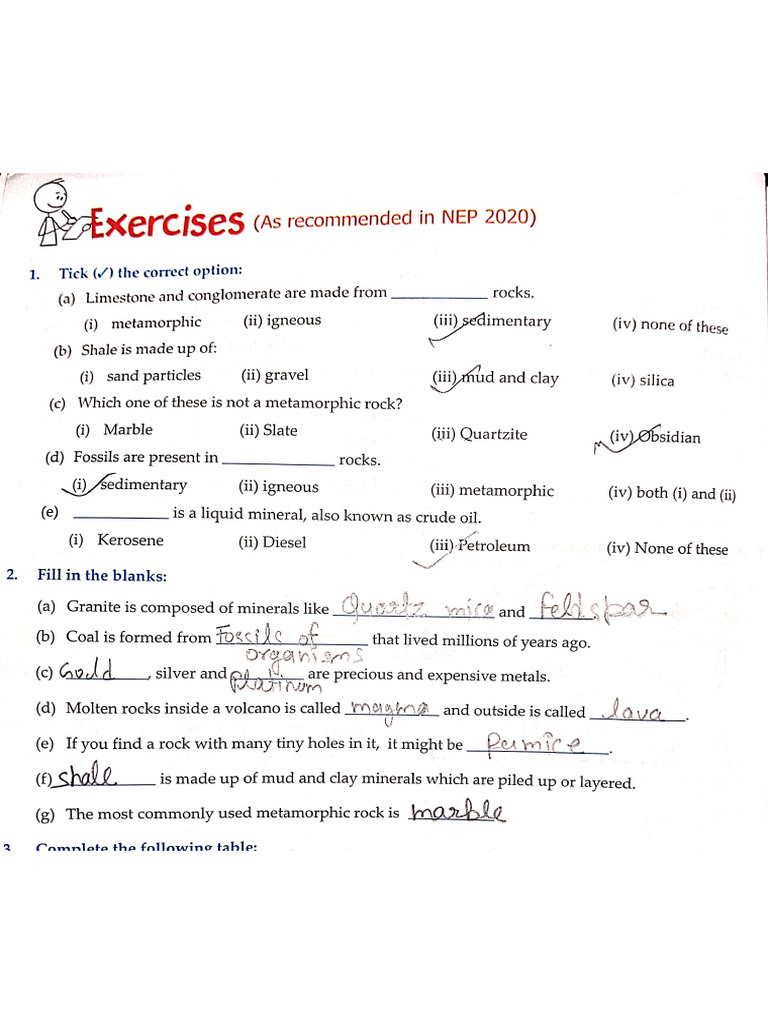 Exercises (As recommended in NEP 2020)
1. Tick (✓) the correct option:
(a) Limestone and conglomerate are made from ____________ rocks.
(i) metamorphic (ii) igneous (iii) sedimentary (iv) none of these
(b) Shale is made up of:
(i) sand particles (ii) gravel (iii) mud and clay (iv) silica
(c) Which one of these is not a metamorphic rock?
(i) Marble (ii) Slate (iii) Quartzite (iv) Obsidian
(d) Fossils are present in ____________ rocks.
(i) sedimentary (ii) igneous (iii) metamorphic (iv) both (i) and (ii)
(e) ____________ is a liquid mineral, also known as crude oil.
(i) Kerosene (ii) Diesel (iii) Petroleum (iv) None of these
2. Fill in the blanks:
(a) Granite is composed of minerals like Quartz mica and feldspar
(b) Coal is formed from Fossils of that lived millions of years ago.
organisms
(c) Gold, silver and are precious and expensive metals.
platinum
(d) Molten rocks inside a volcano is called magma and outside is called lava.
(e) If you find a rock with many tiny holes in it, it might be Pumice.
(f) shale is made up of mud and clay minerals which are piled up or layered.
(g) The most commonly used metamorphic rock is marble
3. Complete the following table: